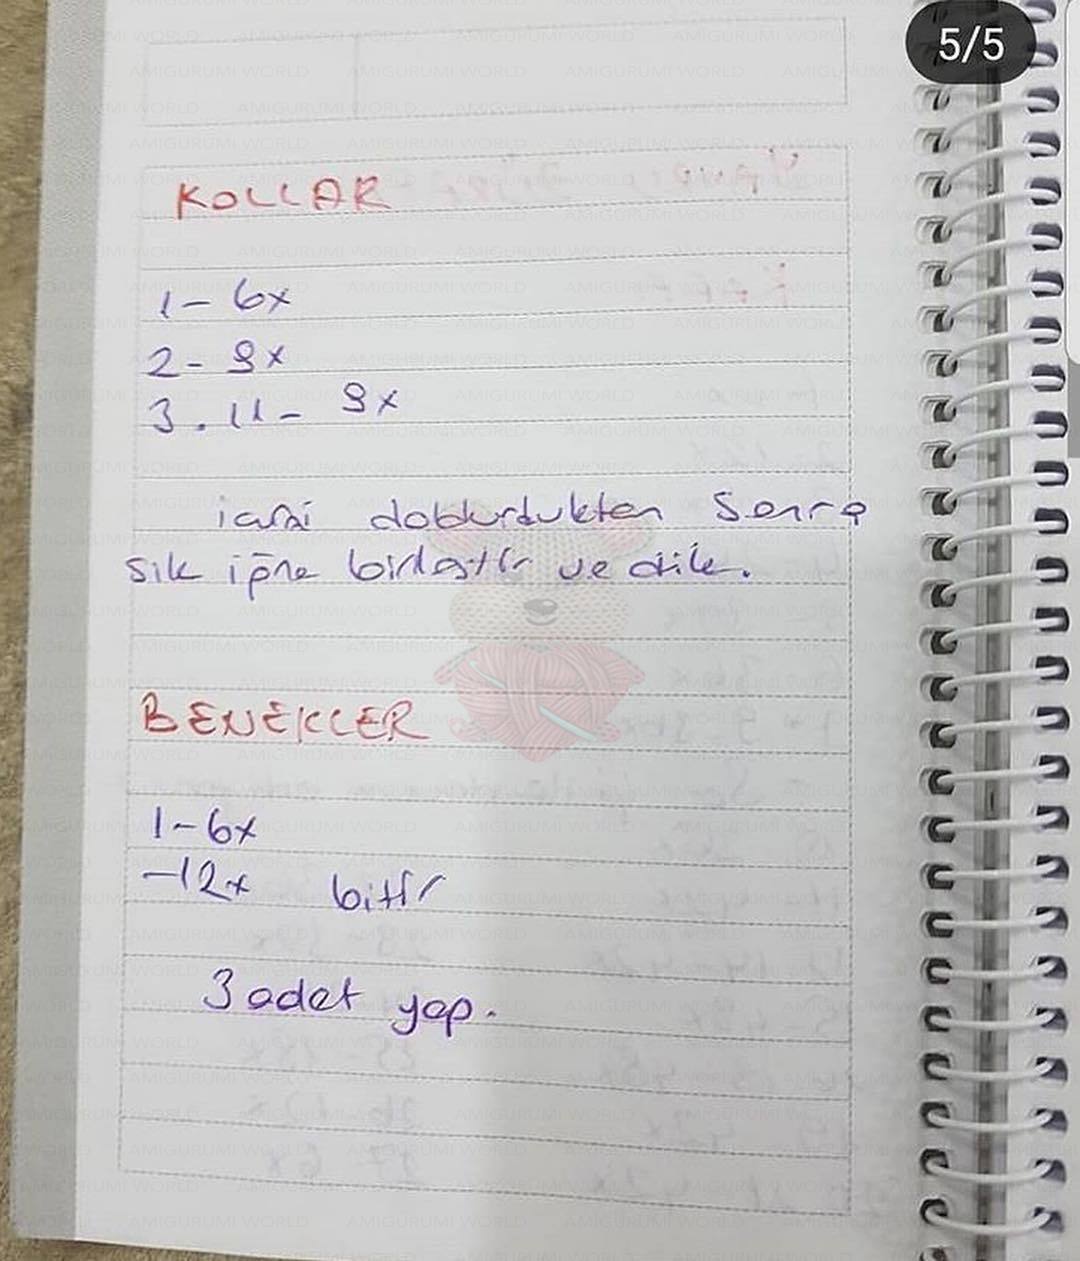 5/5
KOLLAR
1- 6x
2- 9x
3. 11- 9x
içini doldurduktan Sonra
sık iğne birleştir ve dik.
BENEKLER
1-6x
-12x bitir
3 adet yap.
AMIGURUMI WORLD